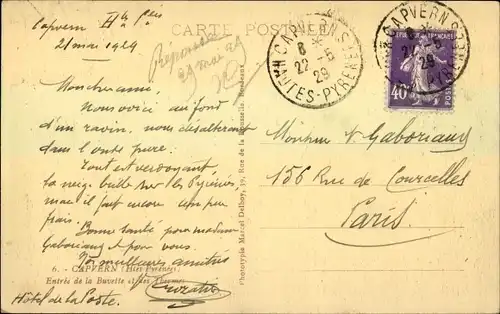 CARTE POSTALE
Capvern Htes Pées
21 mai 1929
Répondu
29 mai 29
Mon cher ami,
Nous voici au fond
d'un ravin, nous désaltérant
dans l'onde pure.
Tout est verdoyant,
la neige brille sur les Pyrénées,
mais il fait encore un peu
frais.
Bonne santé pour madame
Gaboriaud & pour vous.
Vos meilleures amitiés
Hôtel de la Poste.
6. - CAPVERN (Htes-Pyrénées)
Entrée de la Buvette et des Thermes
Phototypie Marcel Delboy, 19, Rue de la Bordeaux
CAPVERN
8 *
22 -5
29
HAUTES-PYRENEES
CAPVERN
8 *
22 -5
29
FRANÇAISE
POSTES
40
Monsieur Gaboriaud
156 Rue de Courcelles
Paris